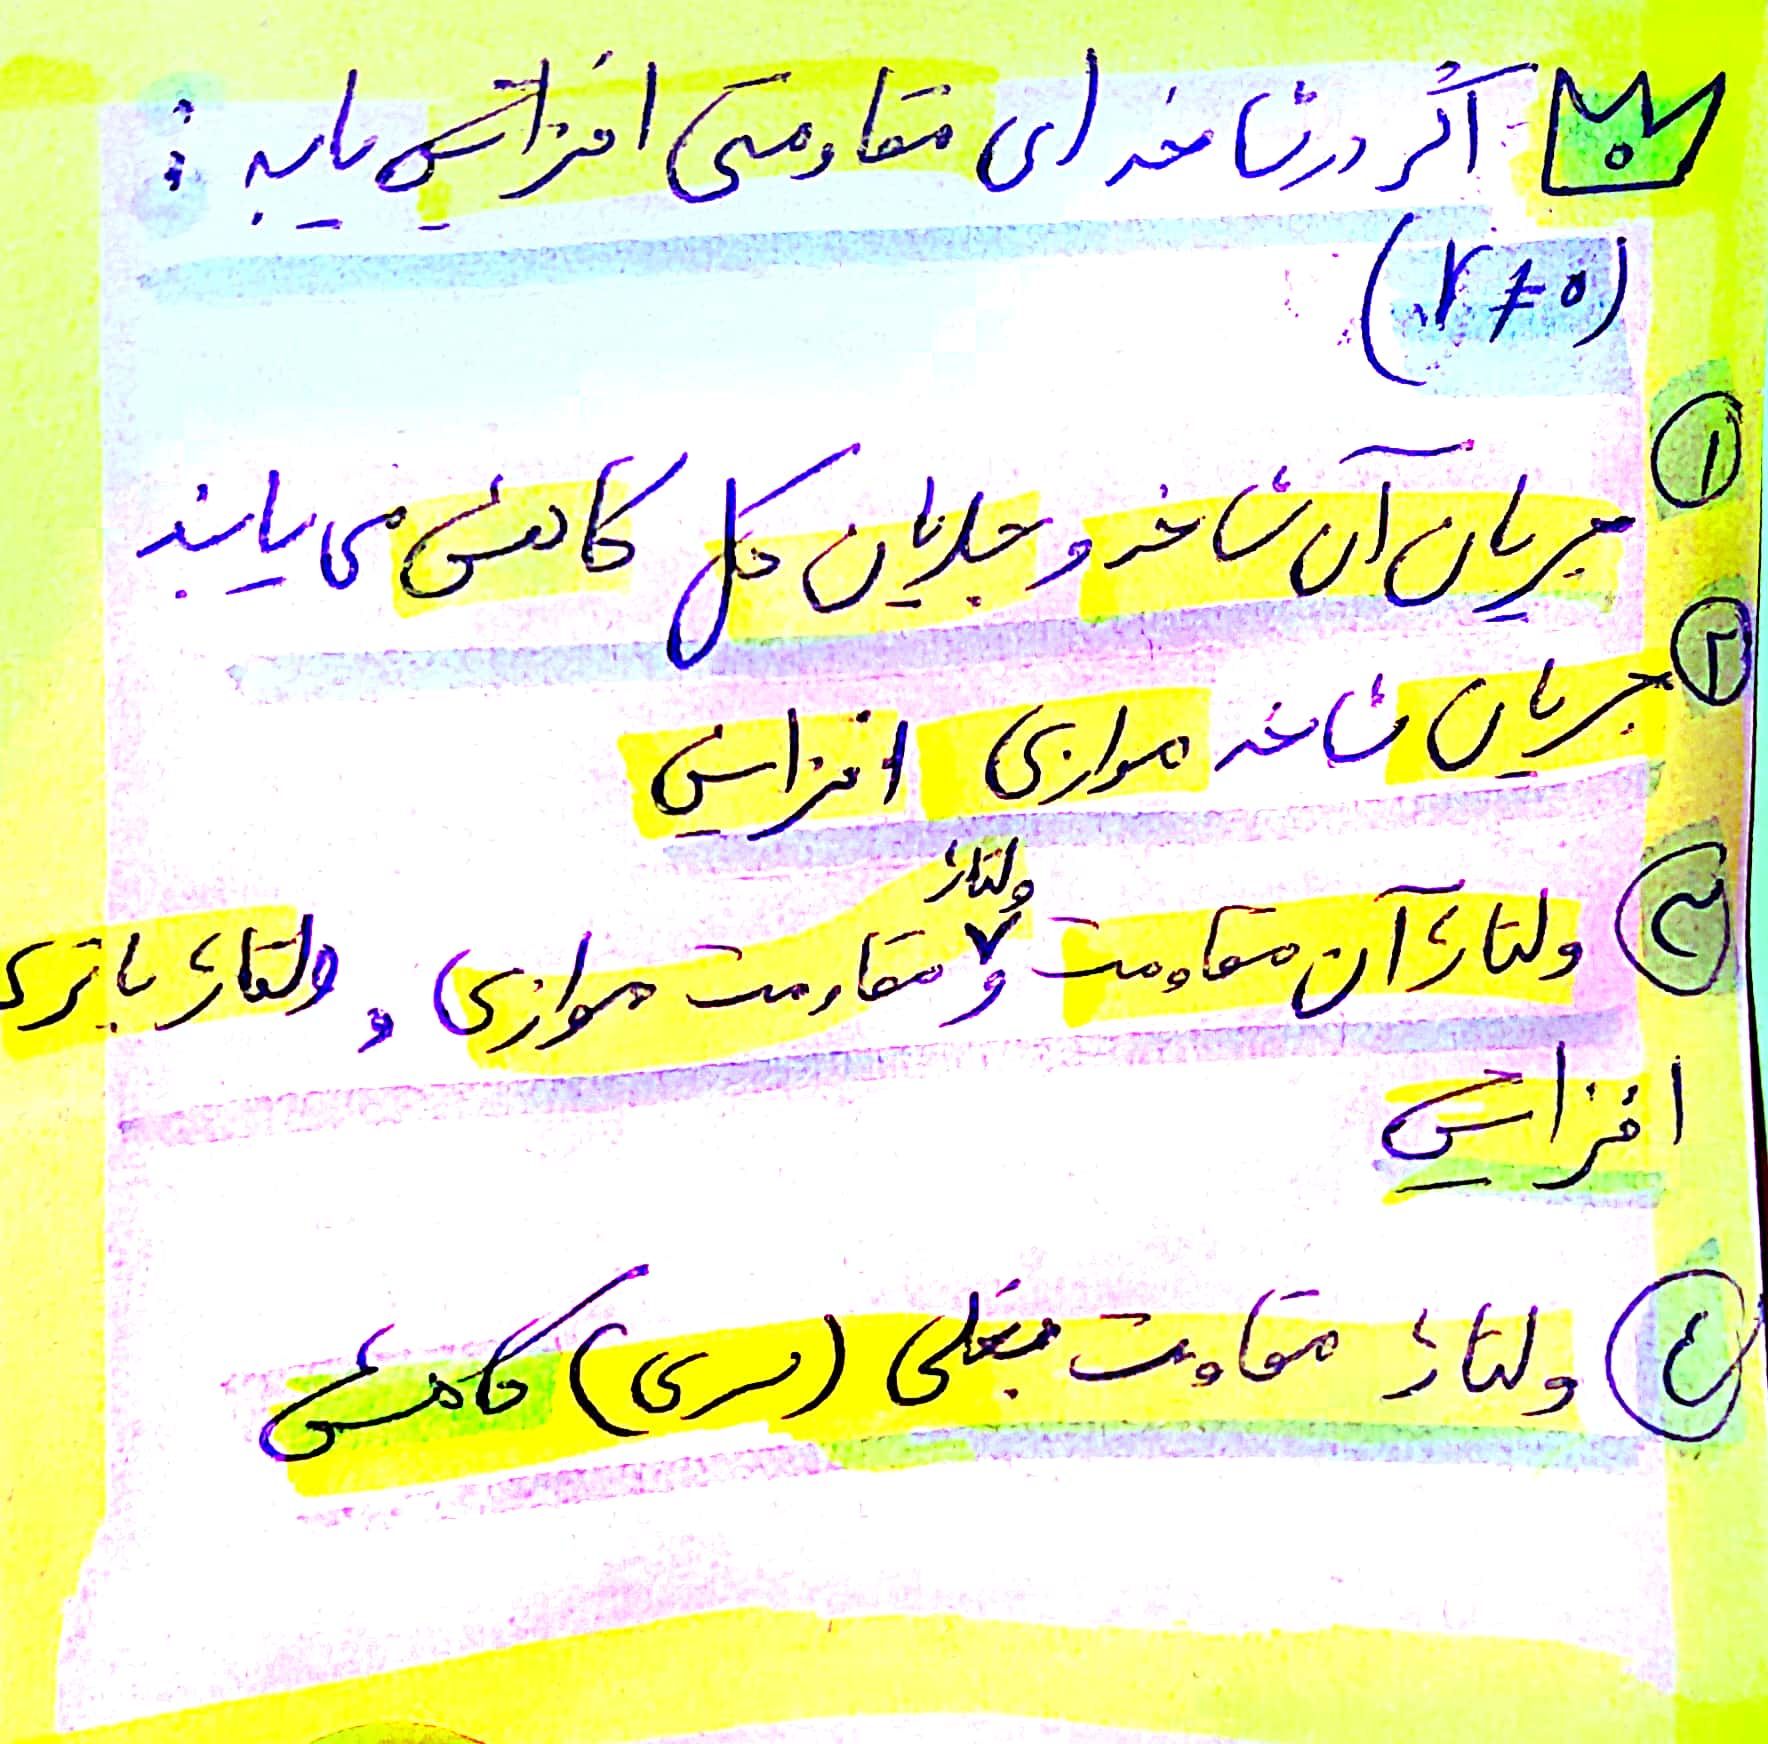 اگر در شاخه ای مقاومتی افزایش یابد :
(r ≠ 0)
۱
جریان آن شاخه و جریان کل کاهش می یابند
۲ جریان شاخه موازی افزایش
ولتاژ
۳ ولتاژ آن مقاومت و مقاومت موازی و ولتاژ باتری
افزایش
٤ ولتاژ مقاومت بغلی (سری) کاهش